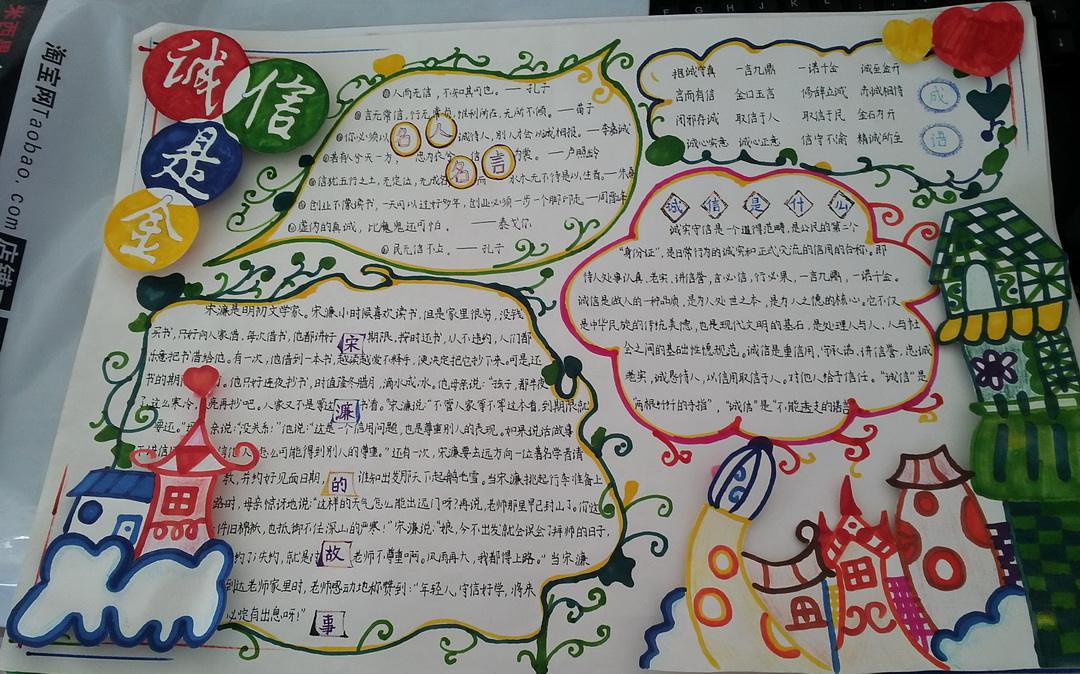 淘宝网Taobao.com 店铺
诚信是金
①人而无信，不知其可也。——孔子
②言无常信，行无常贞，惟利所在，无所不倾。——荀子
③你必须以诚待人，别人才会以诚相报。——李嘉诚
④若有兮天一方，忠为衣兮信为裳。——卢照邻
⑤信犹五行之土，无定位，无成名，而水火无不待是以生者。——朱熹
⑥创业不像读书，一天可以过好多年，创业必须一步一个脚印走。
⑦虚伪的真诚，比魔鬼还可怕。——泰戈尔
⑧民无信不立。——孔子
名人名言
抱诚守真 一言九鼎 一诺千金 诚至金开
言而有信 金口玉言 修辞立诚 赤诚相待
闭邪存诚 取信于人 取信于民 金石为开
诚心实意 诚心正意 信守不渝 精诚所至
成语
诚信是什么
诚实守信是一个道德范畴，是公民的第二个
“身份证”，是日常行为的诚实和正式交流的信用的合称。即
待人处事认真、老实、讲信誉，言必信，行必果，一言九鼎，一诺千金。
诚信是做人的一种品质，是为人处世之本，是为人之德的核心。它不仅
是中华民族的传统美德，也是现代文明的基石，是处理人与人、人与社
会之间的基础性德规范。诚信是重信用、守承诺、讲信誉、忠诚
老实，诚恳待人，以信用取信于人。对他人给予信任。“诚信”是
“两根针尖的手指”，“诚信”是“不能透支的话语
宋濂是明初文学家。宋濂小时候喜欢读书，但是家里很穷，没钱
买书，只好向人家借，每次借书，他都讲好期限，按时还书，从不违约，人们都
乐意把书借给他。有一次，他借到一本书，越读越爱不释手，便决定把它抄下来。可是还
书的期限他只好连夜抄书，时值隆冬腊月，滴水成冰。他母亲说：“孩子，都半夜
了这么寒冷，亮再抄吧。人家又不是等这书看。”宋濂说：“不管人家等不等这本看，到期限就
要还。”母亲说：“没关系！”他说：“这是一个信用问题，也是尊重别人的表现。如果说话做事
不讲信用怎么可能得到别人的尊重。”还有一次，宋濂要去远方向一位著名学者请
教，并约好见面日期，谁知出发那天下起鹅毛雪。当宋濂挑起行李准备上
路时，母亲惊讶地说：“这样的天气怎么能出远门呀？再说，老师那里早已封山了。你这
件旧棉袄，也抵御不住深山的严寒！”宋濂说：“娘，今不出发就会误会了拜师的日子，
约了；失约，就是对老师不尊重啊。风雨再大，我都得上路。”当宋濂
到达老师家里时，老师感动地称赞到：“年轻人，守信好学，将来
必定有出息呀！”
宋濂的故事